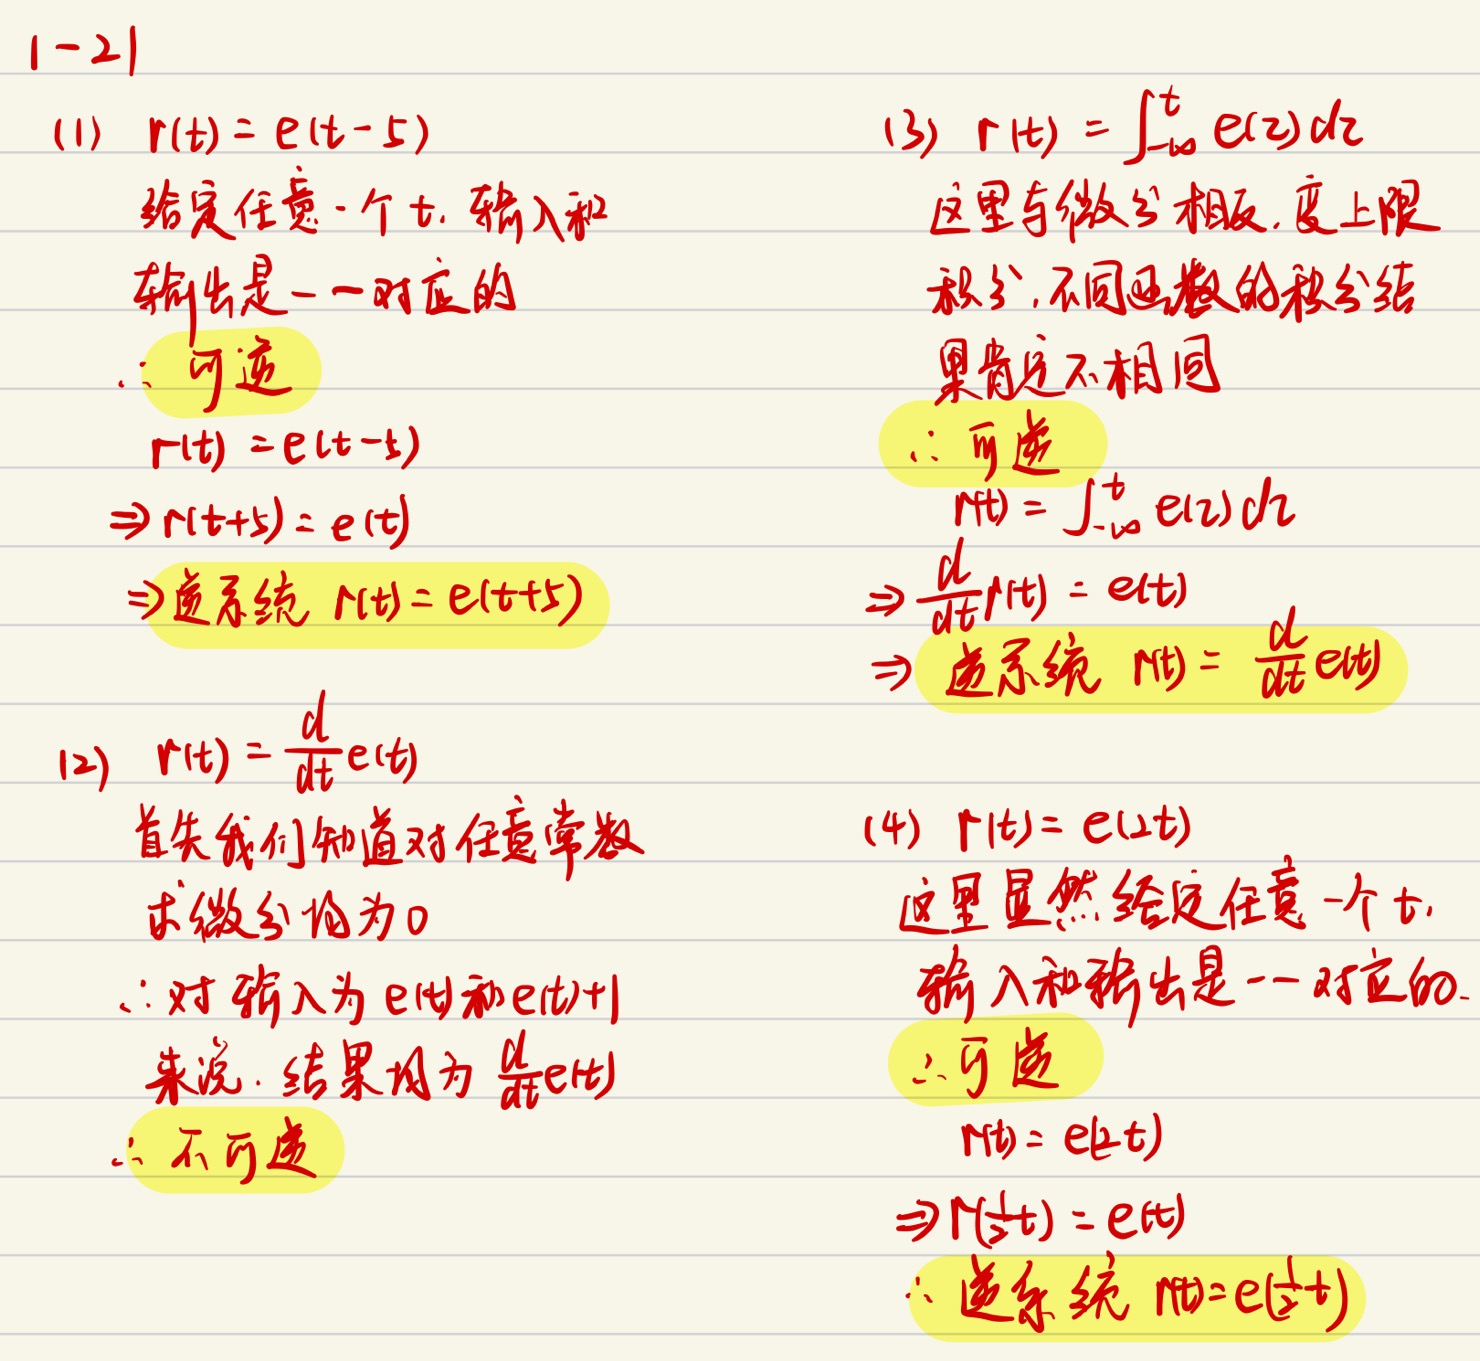 1-21
(1) r(t) = e(t-5)
给定任意一个t，输入和
输出是一一对应的
∴ 可逆
r(t) = e(t-5)
⇒ r(t+5) = e(t)
⇒ 逆系统 r(t) = e(t+5)
(2) r(t) = d/dt e(t)
首先我们知道对任意常数
求微分均为0
∴ 对输入为e(t)和e(t)+1
来说，结果均为 d/dt e(t)
∴ 不可逆
(3) r(t) = ∫_{-∞}^{t} e(τ)dτ
这里与微分相反，变上限
积分，不同函数的积分结
果肯定不相同
∴ 可逆
r(t) = ∫_{-∞}^{t} e(τ)dτ
⇒ d/dt r(t) = e(t)
⇒ 逆系统 r(t) = d/dt e(t)
(4) r(t) = e(2t)
这里显然给定任意一个t，
输入和输出是一一对应的.
∴ 可逆
r(t) = e(2t)
⇒ r(1/2 t) = e(t)
∴ 逆系统 r(t) = e(1/2 t)